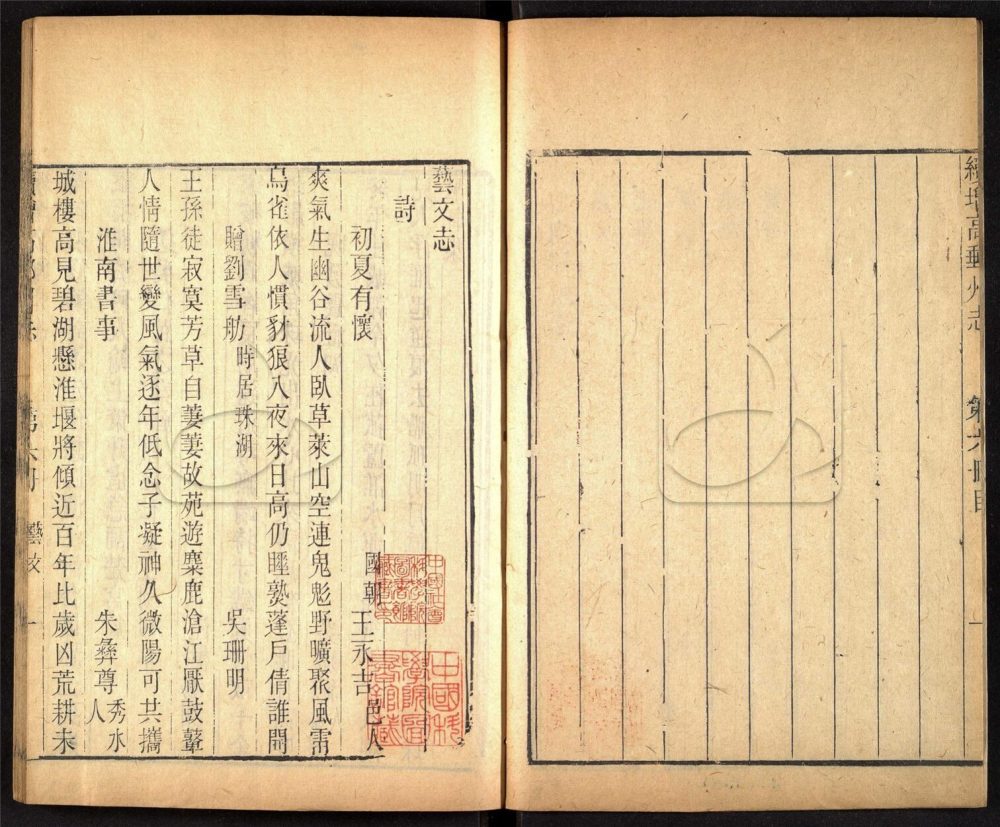 續增高郵州志
第六冊目
一
藝文志
詩
初夏有懷
國朝王永吉邑人
爽氣生幽谷流人臥草萊山空連鬼魅野曠聚風雷
烏雀依人慣豺狼入夜來日高仍睡熟蓬戶倩誰開
贈劉雪舫時居珠湖
吳珊明
王孫徒寂寞芳草自萋萋故苑遊麋鹿滄江厭鼓鼙
人情隨世變風氣逐年低念子凝神久微陽可共攜
淮南書事
朱彝尊秀水人
城樓高見碧湖懸淮堰將傾近百年比歲凶荒耕未
續增高郵州志
第六冊
藝文
一
中國社會科學院圖書館藏書印
中國科學院圖書館藏